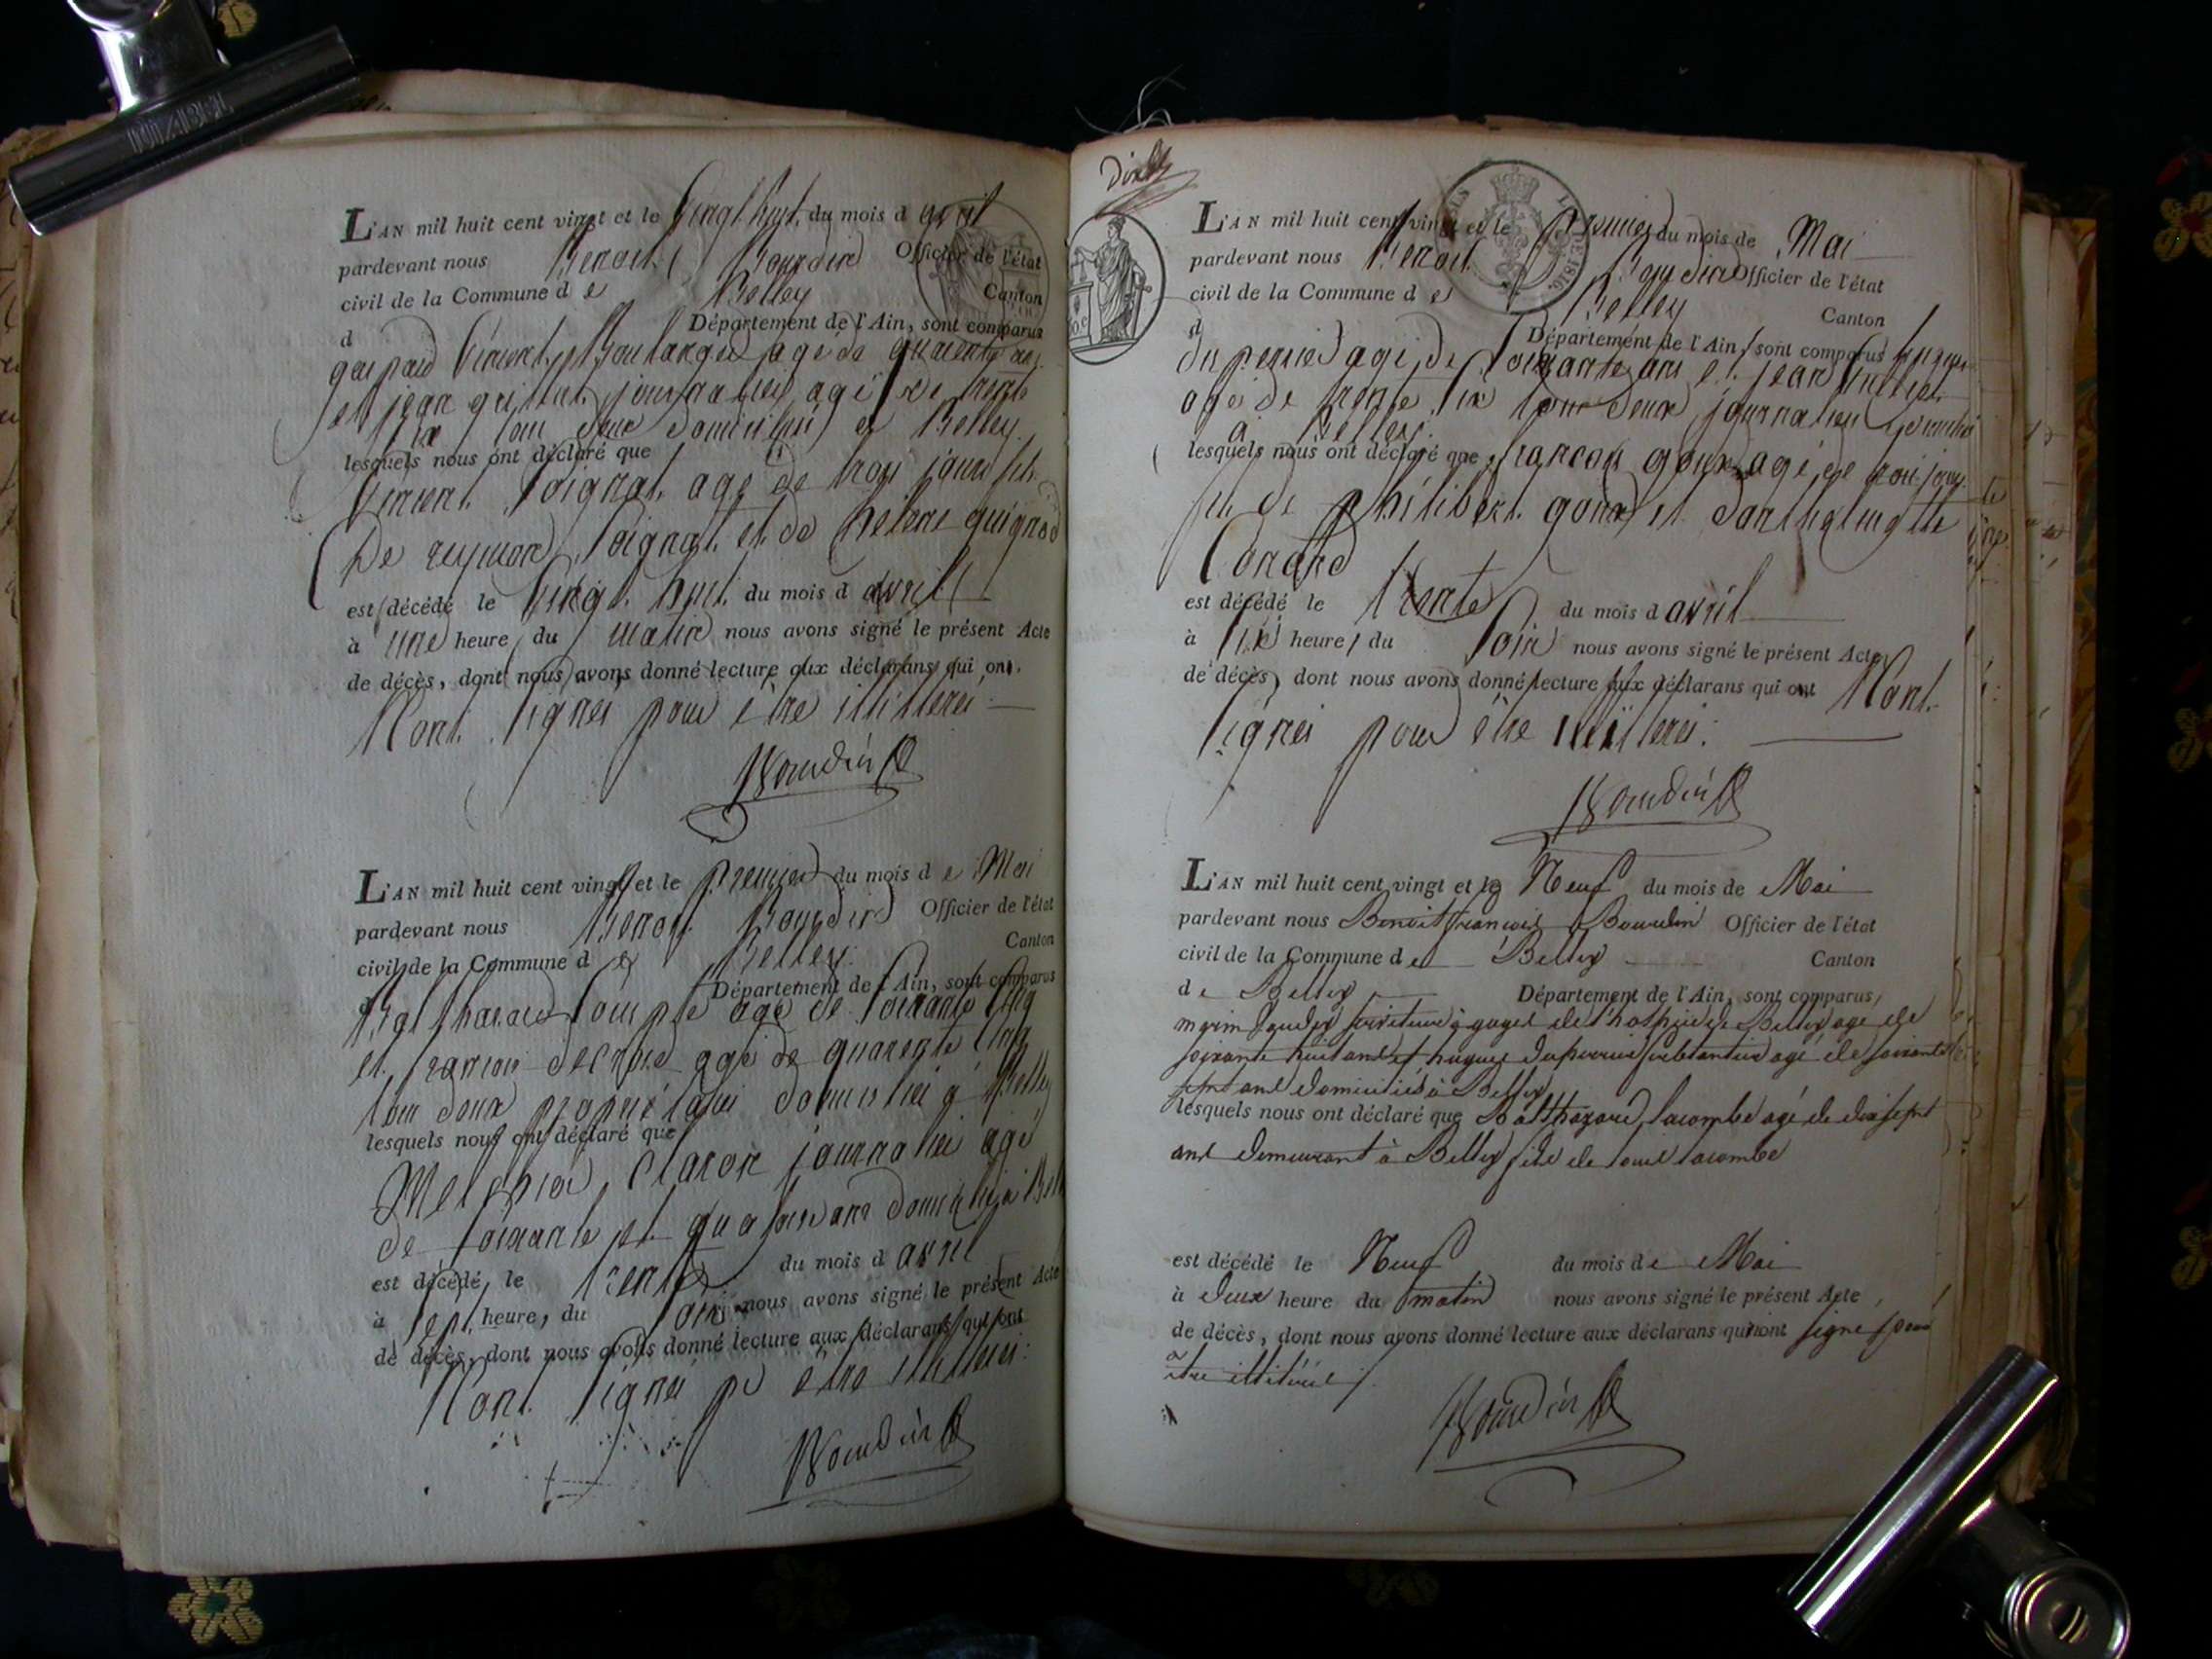 L'AN mil huit cent vingt et le vingt huit du mois d avril
pardevant nous Benoit Bourdin Officier de l'état
civil de la Commune d e Belley Canton
d Département de l'Ain, sont comparus
gaspard Vincent Boulanger agé de quarente ans
et jean journalier agé de trente
six tous deux domiciliés a Belley
lesquels nous ont déclaré que
Vincent Soignat agé de trois jours fils
De reymond Soignat et de helene
est décédé le Vingt huit du mois d avril
à une heure, du matin nous avons signé le présent Acte
de décès, dont nous avons donné lecture aux déclarans qui ont
Nont signés pour être illitterés
Bourdin
L'AN mil huit cent vingt et le premier du mois d e Mai
pardevant nous Benoit Bourdin Officier de l'état
civil de la Commune d e Belley Canton
d Département de l'Ain, sont comparus
agé de soixante cinq
et françois agé de quarente cinq
tous deux propriétaires domiciliés a Belley
lesquels nous ont déclaré que
Melchior Claron journalier agé
de soixante et quatorze ans domicilié a Bell
est décédé, le trente du mois d avril
à sept heure, du soir nous avons signé le présent Acte
de décès, dont nous avons donné lecture aux déclarans qui ont
Nont signés pr être illitterés
Bourdin
L'AN mil huit cent vingt et le premier du mois de Mai
pardevant nous Benoit Bourdin Officier de l'état
civil de la Commune d e Belley Canton
d Département de l'Ain, sont comparus hugues
duperrier agé de soixante ans et jean
agé de trente six tous deux journaliers domiciliés
a Belley
lesquels nous ont déclaré que françois goux agé de trois jours
fils de philibert goux et
Conard
est décédé le trente du mois d avril
à six heure, du soir nous avons signé le présent Acte
de décès, dont nous avons donné lecture aux déclarans qui ont Nont
signés pour être illitterés.
Bourdin
L'AN mil huit cent vingt et le Neuf du mois de Mai
pardevant nous Benoit françois Bourdin Officier de l'état
civil de la Commune d e Belley Canton
d e Belley Département de l'Ain, sont comparus,
serviteur à gages de l'hospice de Belley agé de
soixante huit ans et hugues duperrier agé de soixante
sept ans domiciliés à Belley
lesquels nous ont déclaré que Balthazard lacombe agé de dixsept
ans demeurant à Belley fils de lacombe
est décédé le Neuf du mois d e Mai
à deux heure du matin nous avons signé le présent Acte
de décès, dont nous avons donné lecture aux déclarans qui n'ont signé pour
être illiterés
Bourdin